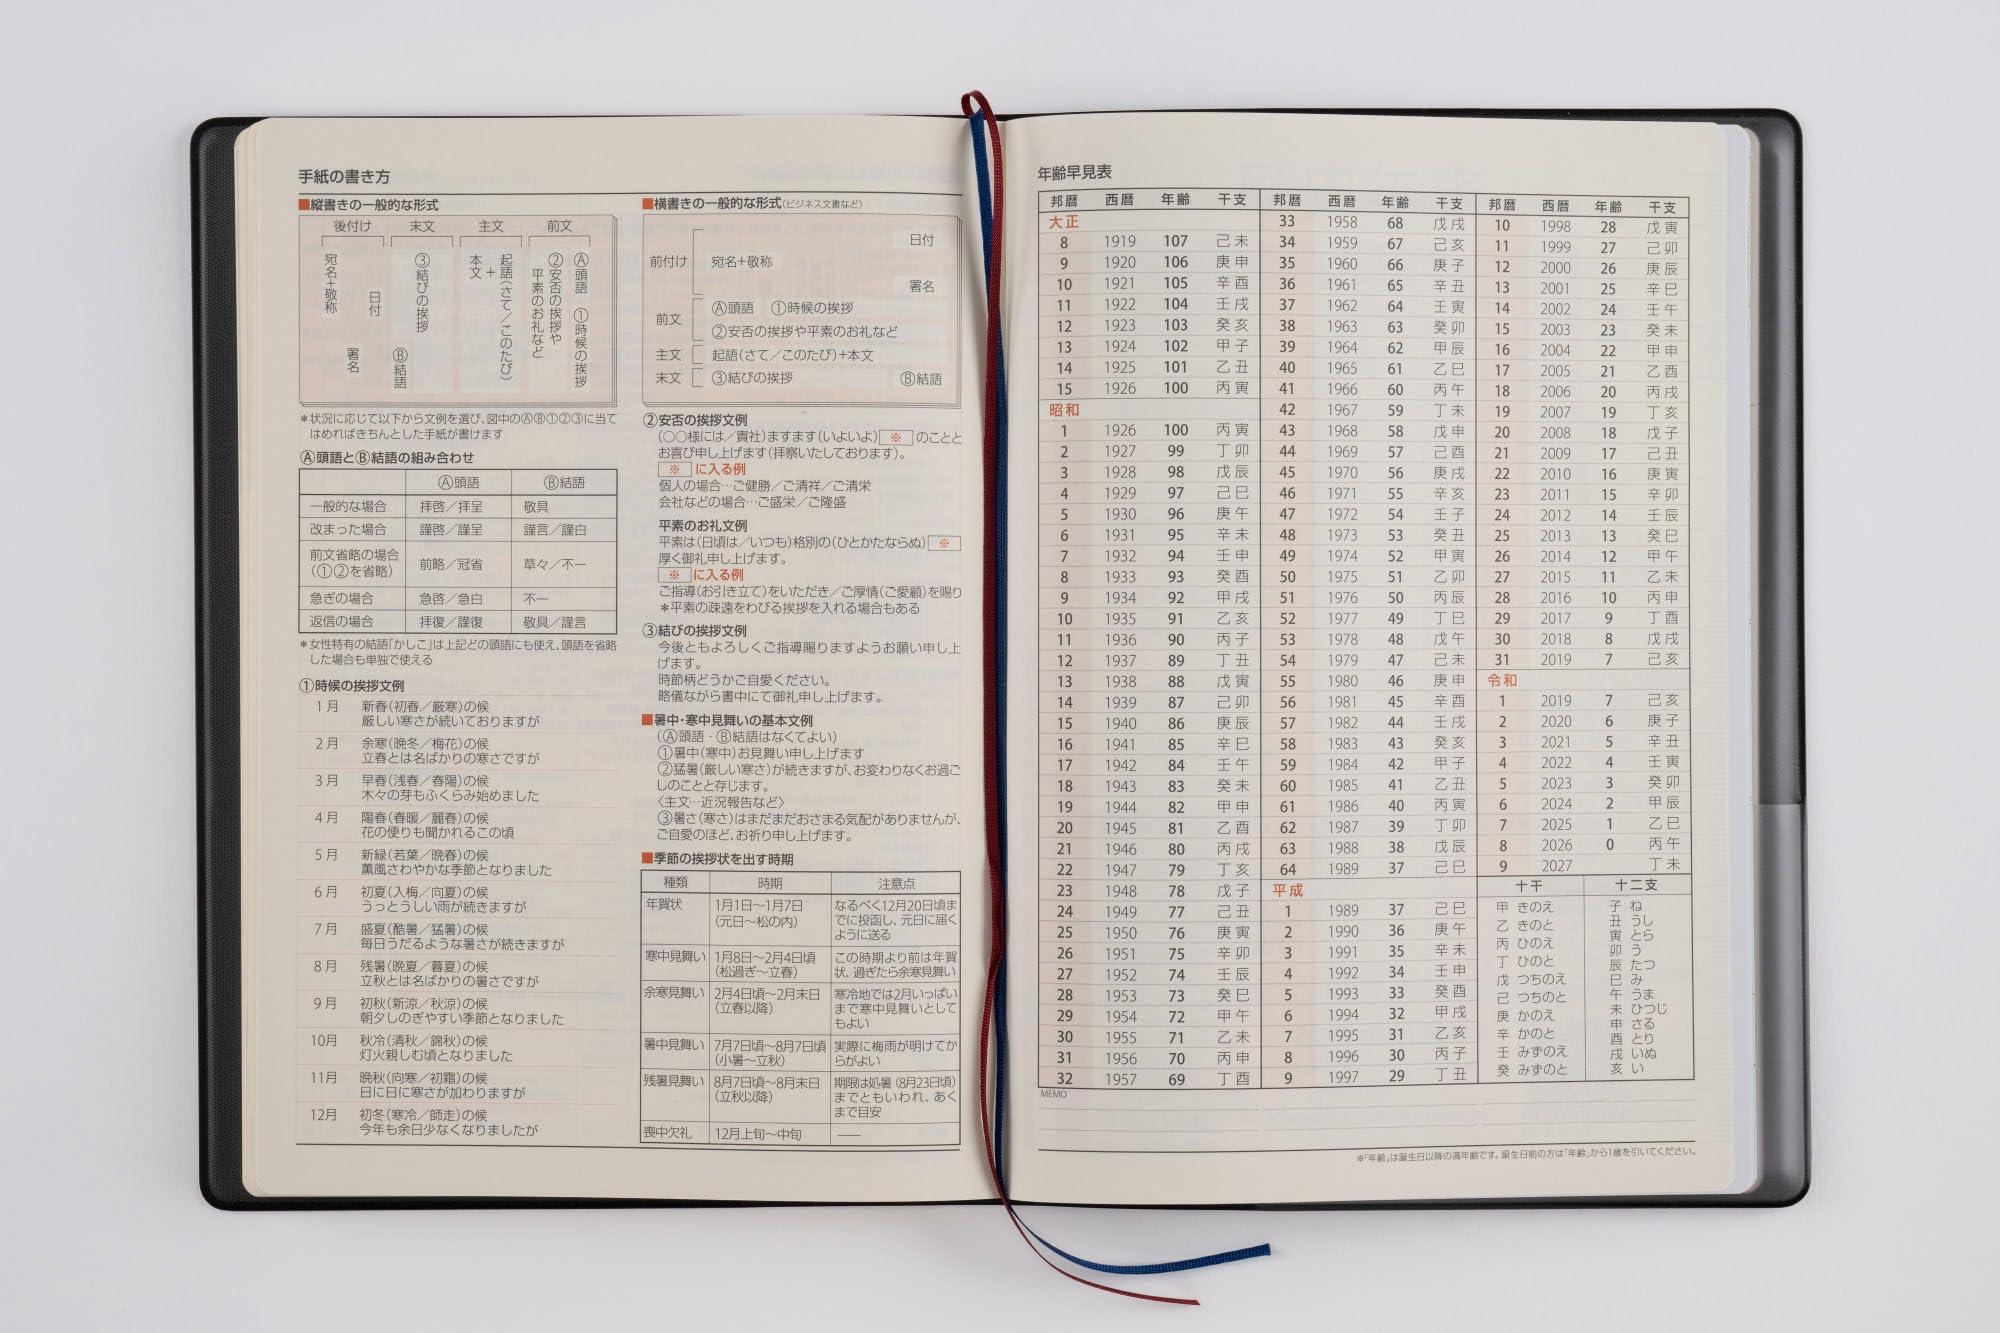 手紙の書き方
■縦書きの一般的な形式
後付け 末文 主文 前文
Ⓐ頭語 ①時候の挨拶
②安否の挨拶や
平素のお礼など
起語(さて／このたび)
+
本文
③結びの挨拶
Ⓑ結語
日付
署名
宛名+敬称
＊状況に応じて以下から文例を選び、図中のⒶⒷ①②③に当て
はめればきちんとした手紙が書けます
Ⓐ頭語とⒷ結語の組み合わせ
Ⓐ頭語 Ⓑ結語
一般的な場合 拝啓／拝呈 敬具
改まった場合 謹啓／謹呈 謹言／謹白
前文省略の場合
(①②を省略) 前略／冠省 草々／不一
急ぎの場合 急啓／急白 不一
返信の場合 拝復／謹復 敬具／謹言
＊女性特有の結語「かしこ」は上記どの頭語にも使え、頭語を省略
した場合も単独で使える
①時候の挨拶文例
1月 新春(初春／厳寒)の候
厳しい寒さが続いておりますが
2月 余寒(晩冬／梅花)の候
立春とは名ばかりの寒さですが
3月 早春(浅春／春陽)の候
木々の芽もふくらみ始めました
4月 陽春(春暖／麗春)の候
花の便りも聞かれるこの頃
5月 新緑(若葉／晩春)の候
薫風さわやかな季節となりました
6月 初夏(入梅／向夏)の候
うっとうしい雨が続きますが
7月 盛夏(酷暑／猛暑)の候
毎日うだるような暑さが続きますが
8月 残暑(晩夏／暮夏)の候
立秋とは名ばかりの暑さですが
9月 初秋(新涼／秋涼)の候
朝夕しのぎやすい季節となりました
10月 秋冷(清秋／錦秋)の候
灯火親しむ頃となりました
11月 晩秋(向寒／初霜)の候
日に日に寒さが加わりますが
12月 初冬(寒冷／師走)の候
今年も余日少なくなりましたが
■横書きの一般的な形式(ビジネス文書など)
日付
前付け 宛名+敬称
署名
前文 Ⓐ頭語 ①時候の挨拶
②安否の挨拶や平素のお礼など
主文 起語(さて／このたび)+本文
末文 ③結びの挨拶 Ⓑ結語
②安否の挨拶文例
(○○様には／貴社)ますます(いよいよ) ※ のことと
お喜び申し上げます(拝察いたしております)。
※ に入る例
個人の場合…ご健勝／ご清祥／ご清栄
会社などの場合…ご盛栄／ご隆盛
平素のお礼文例
平素は(日頃は／いつも)格別の(ひとかたならぬ) ※
厚く御礼申し上げます。
※ に入る例
ご指導(お引き立て)をいただき／ご厚情(ご愛顧)を賜り
＊平素の疎遠をわびる挨拶を入れる場合もある
③結びの挨拶文例
今後ともよろしくご指導賜りますようお願い申し上
げます。
時節柄どうかご自愛ください。
略儀ながら書中にて御礼申し上げます。
■暑中・寒中見舞いの基本文例
(Ⓐ頭語・Ⓑ結語はなくてよい)
①暑中(寒中)お見舞い申し上げます
②猛暑(厳しい寒さ)が続きますが、お変わりなくお過ご
しのことと存じます。
〈主文…近況報告など〉
③暑さ(寒さ)はまだまだおさまる気配がありませんが、
ご自愛のほど、お祈り申し上げます。
■季節の挨拶状を出す時期
種類 時期 注意点
年賀状 1月1日～1月7日 なるべく12月20日頃ま
(元日～松の内) でに投函し、元日に届く
ように送る
寒中見舞い 1月8日～2月4日頃 この時期より前は年賀
(松過ぎ～立春) 状、過ぎたら余寒見舞い
余寒見舞い 2月4日頃～2月末日 寒冷地では2月いっぱい
(立春以降) まで寒中見舞いとして
もよい
暑中見舞い 7月7日頃～8月7日頃 実際に梅雨が明けてか
(小暑～立秋) らがよい
残暑見舞い 8月7日頃～8月末日 期限は処暑(8月23日頃)
(立秋以降) までともいわれ、あく
まで目安
喪中欠礼 12月上旬～中旬 ――
年齢早見表
邦暦 西暦 年齢 干支
大正
8 1919 107 己未
9 1920 106 庚申
10 1921 105 辛酉
11 1922 104 壬戌
12 1923 103 癸亥
13 1924 102 甲子
14 1925 101 乙丑
15 1926 100 丙寅
昭和
1 1926 100 丙寅
2 1927 99 丁卯
3 1928 98 戊辰
4 1929 97 己巳
5 1930 96 庚午
6 1931 95 辛未
7 1932 94 壬申
8 1933 93 癸酉
9 1934 92 甲戌
10 1935 91 乙亥
11 1936 90 丙子
12 1937 89 丁丑
13 1938 88 戊寅
14 1939 87 己卯
15 1940 86 庚辰
16 1941 85 辛巳
17 1942 84 壬午
18 1943 83 癸未
19 1944 82 甲申
20 1945 81 乙酉
21 1946 80 丙戌
22 1947 79 丁亥
23 1948 78 戊子
24 1949 77 己丑
25 1950 76 庚寅
26 1951 75 辛卯
27 1952 74 壬辰
28 1953 73 癸巳
29 1954 72 甲午
30 1955 71 乙未
31 1956 70 丙申
32 1957 69 丁酉
邦暦 西暦 年齢 干支
33 1958 68 戊戌
34 1959 67 己亥
35 1960 66 庚子
36 1961 65 辛丑
37 1962 64 壬寅
38 1963 63 癸卯
39 1964 62 甲辰
40 1965 61 乙巳
41 1966 60 丙午
42 1967 59 丁未
43 1968 58 戊申
44 1969 57 己酉
45 1970 56 庚戌
46 1971 55 辛亥
47 1972 54 壬子
48 1973 53 癸丑
49 1974 52 甲寅
50 1975 51 乙卯
51 1976 50 丙辰
52 1977 49 丁巳
53 1978 48 戊午
54 1979 47 己未
55 1980 46 庚申
56 1981 45 辛酉
57 1982 44 壬戌
58 1983 43 癸亥
59 1984 42 甲子
60 1985 41 乙丑
61 1986 40 丙寅
62 1987 39 丁卯
63 1988 38 戊辰
64 1989 37 己巳
平成
1 1989 37 己巳
2 1990 36 庚午
3 1991 35 辛未
4 1992 34 壬申
5 1993 33 癸酉
6 1994 32 甲戌
7 1995 31 乙亥
8 1996 30 丙子
9 1997 29 丁丑
邦暦 西暦 年齢 干支
10 1998 28 戊寅
11 1999 27 己卯
12 2000 26 庚辰
13 2001 25 辛巳
14 2002 24 壬午
15 2003 23 癸未
16 2004 22 甲申
17 2005 21 乙酉
18 2006 20 丙戌
19 2007 19 丁亥
20 2008 18 戊子
21 2009 17 己丑
22 2010 16 庚寅
23 2011 15 辛卯
24 2012 14 壬辰
25 2013 13 癸巳
26 2014 12 甲午
27 2015 11 乙未
28 2016 10 丙申
29 2017 9 丁酉
30 2018 8 戊戌
31 2019 7 己亥
令和
1 2019 7 己亥
2 2020 6 庚子
3 2021 5 辛丑
4 2022 4 壬寅
5 2023 3 癸卯
6 2024 2 甲辰
7 2025 1 乙巳
8 2026 0 丙午
9 2027 丁未
十干
甲 きのえ
乙 きのと
丙 ひのえ
丁 ひのと
戊 つちのえ
己 つちのと
庚 かのえ
辛 かのと
壬 みずのえ
癸 みずのと
十二支
子 ね
丑 うし
寅 とら
卯 う
辰 たつ
巳 み
午 うま
未 ひつじ
申 さる
酉 とり
戌 いぬ
亥 い
MEMO
※「年齢」は誕生日以降の満年齢です。誕生日前の方は「年齢」から1歳を引いてください。